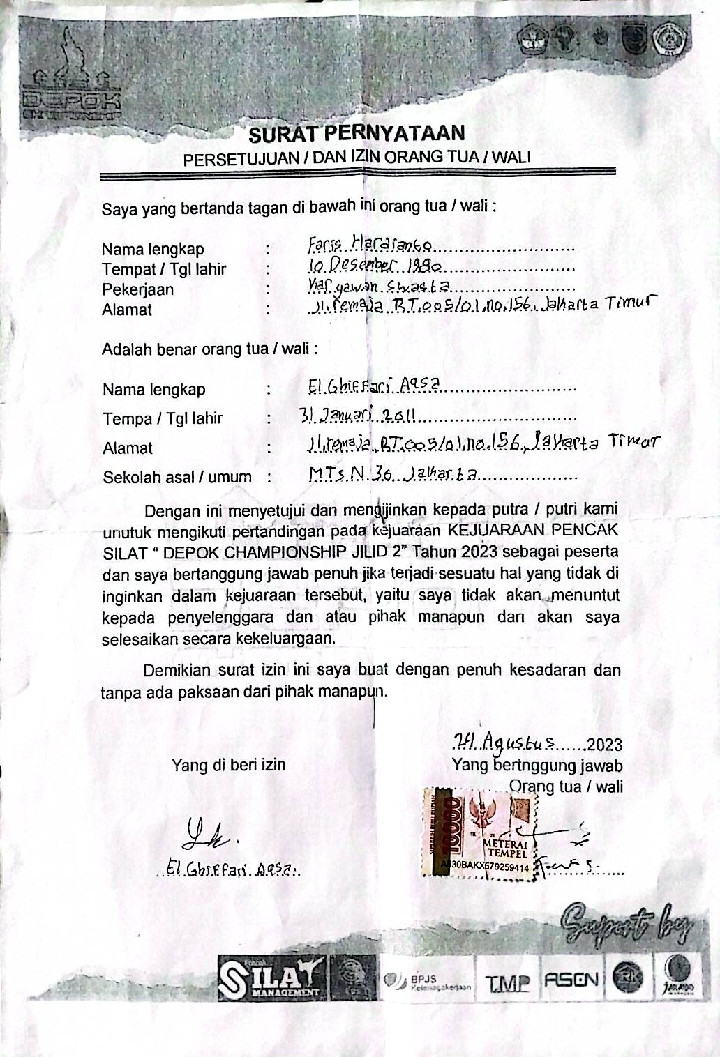 DEPOK
SURAT PERNYATAAN
PERSETUJUAN / DAN IZIN ORANG TUA / WALI
Saya yang bertanda tagan di bawah ini orang tua / wali :
Nama lengkap : Faris Hardianto
Tempat / Tgl lahir : 10 Desember 1980
Pekerjaan : Karyawan Swasta
Alamat : Jl. remaja RT.005/01.no.156, Jakarta Timur
Adalah benar orang tua / wali :
Nama lengkap : El Ghiffari Aqsa
Tempa / Tgl lahir : 31 Januari 2011
Alamat : Jl. remaja RT.005/01.no.156, Jakarta Timur
Sekolah asal / umum : MTs N 36 Jakarta
Dengan ini menyetujui dan mengijinkan kepada putra / putri kami
unutuk mengikuti pertandingan pada kejuaraan KEJUARAAN PENCAK
SILAT " DEPOK CHAMPIONSHIP JILID 2" Tahun 2023 sebagai peserta
dan saya bertanggung jawab penuh jika terjadi sesuatu hal yang tidak di
inginkan dalam kejuaraan tersebut, yaitu saya tidak akan menuntut
kepada penyelenggara dan atau pihak manapun dan akan saya
selesaikan secara kekeluargaan.
Demikian surat izin ini saya buat dengan penuh kesadaran dan
tanpa ada paksaan dari pihak manapun.
Agustus......2023
Yang di beri izin
Yang bertnggung jawab
Orang tua / wali
10000
METERAI
TEMPEL
El Ghiffari Aqsa
Suport by
Pencak
SILAT
MANAGEMENT
BPJS
Ketenagakerjaan
TMP
ASCN